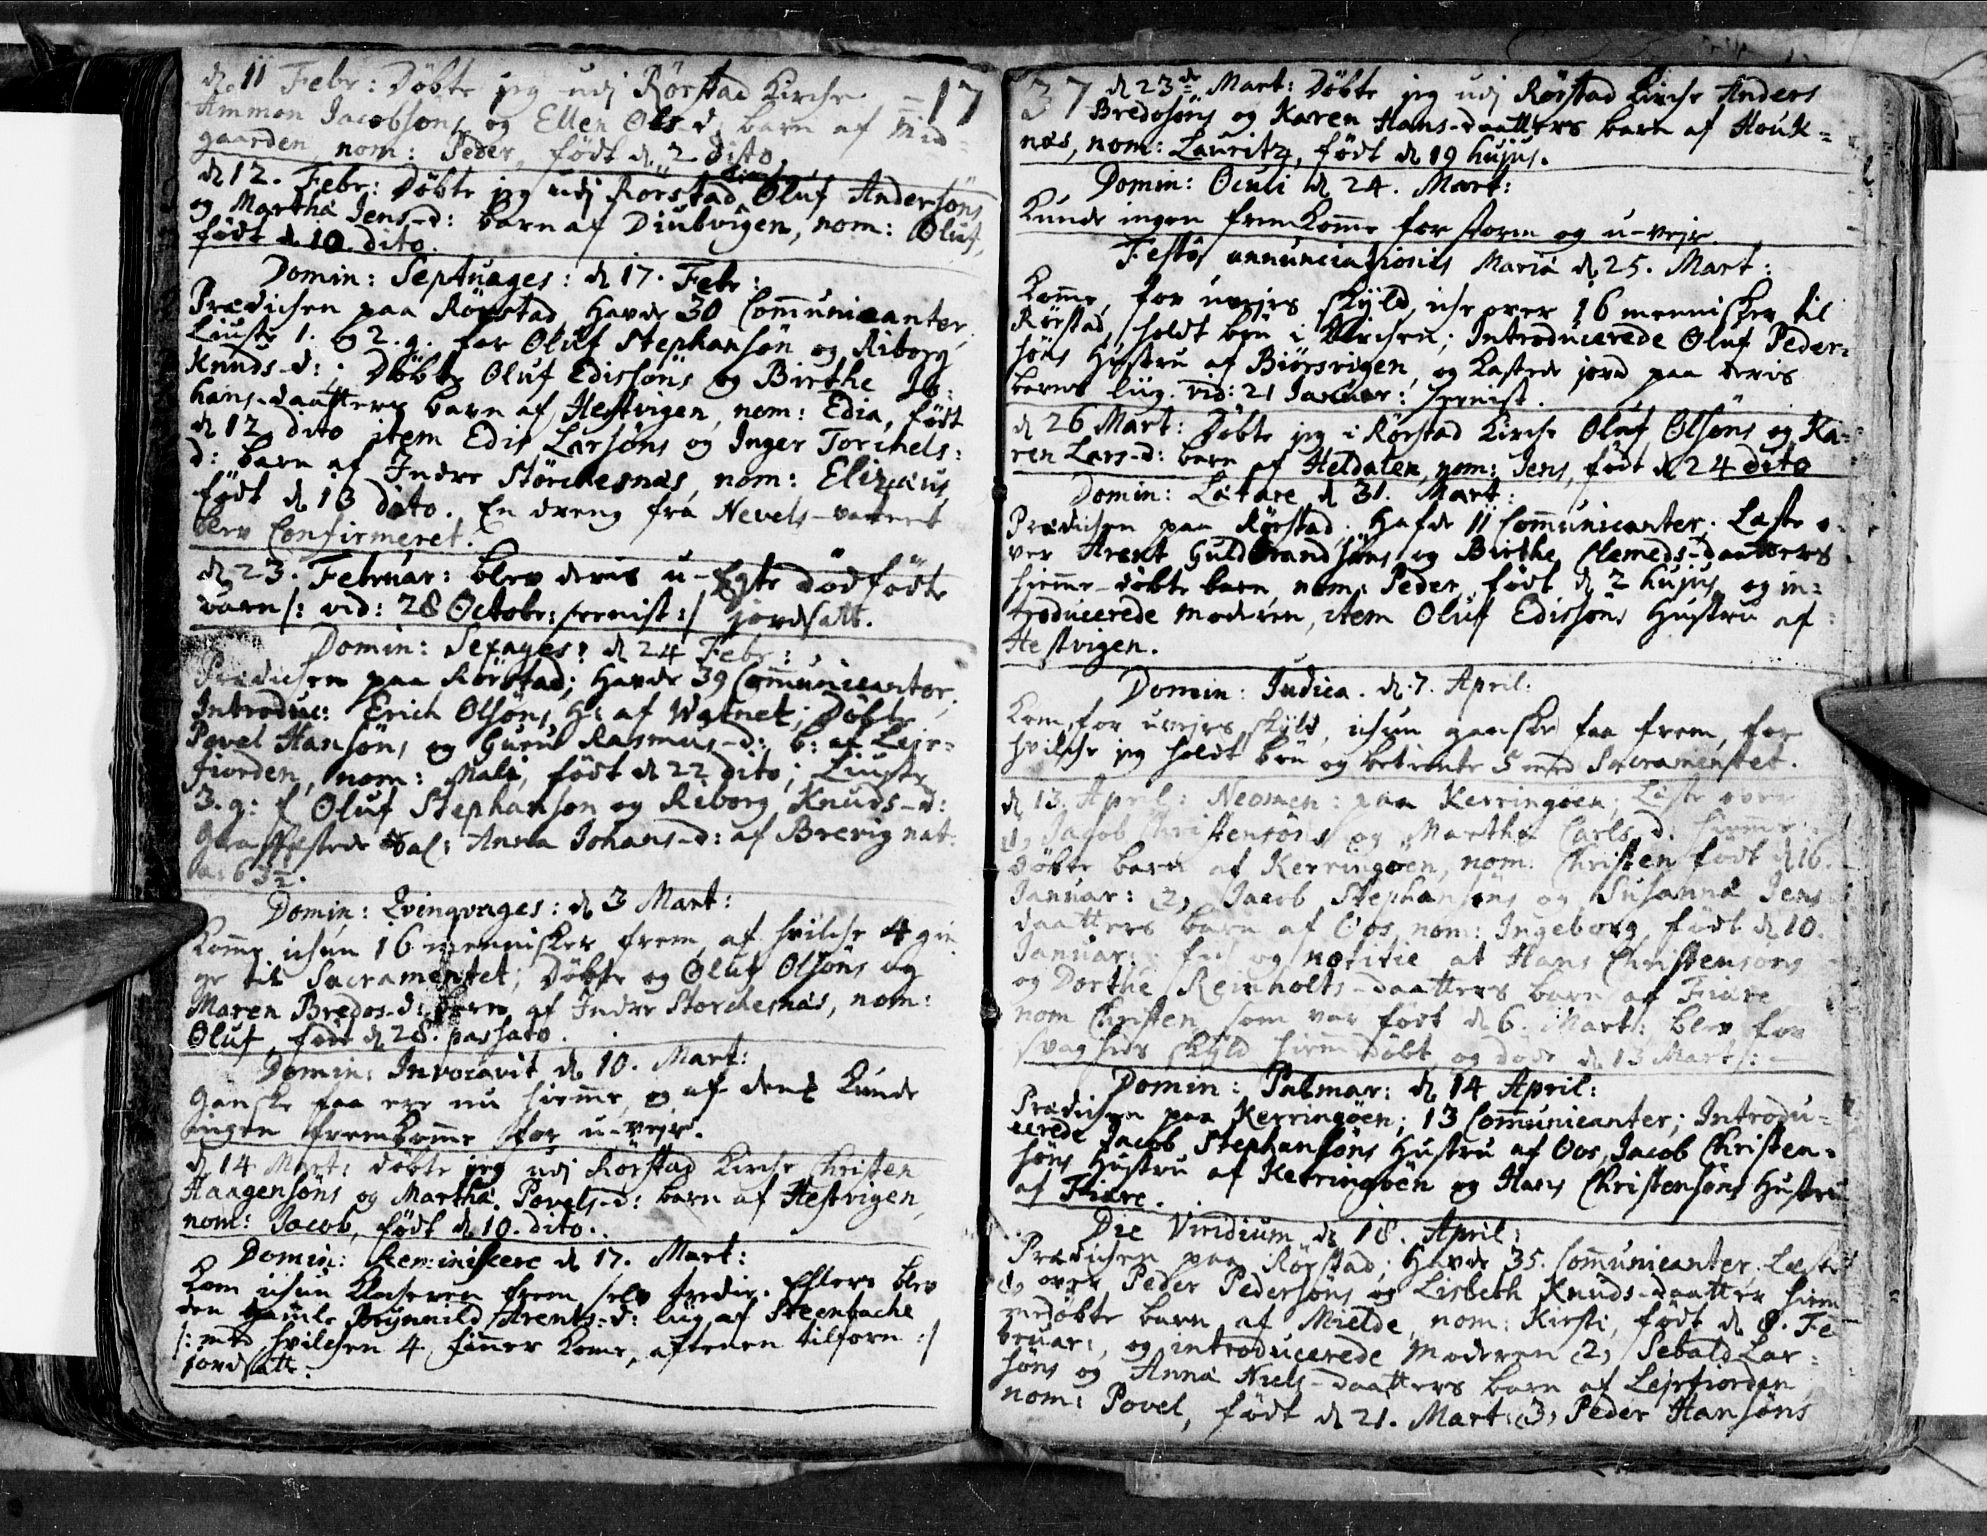 17
d 11 Febr: Döbte jeg udj Rörstad Kirche
Ammon Jacobsöns og Ellen Ols-d: barn af Mid-
gaarden nom: Peder, födt d 2 dito.
d 12. Febr: Döbte jeg udj Rörstad Kirche Oluf Andersöns
og Martha Jens-d: barn af Diubvigen, nom: Oluf,
födt d 10 dito.
Domin: Septuages: d 17. Febr:
Prædichen paa Rörstad, Havde 30 Communicanter,
Liuste 1. og 2. g. for Oluf Stephansön og Riborg
Knuds-d: Döbte Oluf Edissöns og Birthe Jo-
hans-daatters barn af Hestvigen, nom: Edia, födt
d 12 dito item Edis Larsöns og Inger Torchels-
d: barn af Indre Störchesnæs, nom: Elizæus,
födt d 13 dito. En dreng fra Nevels-vatnet
blev Confirmeret.
d 23. Februar: blev deris u-Egte dödfödte
barn /: vid: 28 Octobr: /: jordsatt.
Domin: Sexages: d 24 Febr:
Prædichen paa Rörstad; Havde 39 Communicanter,
Introduc: Erich Olsöns H: af Watnet; Döbte
Povel Hansöns og Guru Rasmus-d: b: af Leir-
fiorden, nom: Mali, födt d 22 dito; Liuste
3. g: f Oluf Stephanson og Riborg Knuds-d:
Graffestede Sal: Anna Johans-d: af Brevig nat:
6 3½.
Domin: Qvinqvages: d 3 Mart:
Komme ichun 16 mennisker frem, af hvilche 4 gin-
ge til Sacramentet; Döbte og Oluf Olsöns og
Maren Bredos-d: barn af Indre Storchesnæs, nom:
Oluf, födt d 28. passato.
Domin: Invocavit d 10. Mart:
Ganske faa ere nu hiemme, og af dem kunde
ingen fremkomme for u-vejr.
d 14 Mart: döbte jeg udj Rörstad Kirche Christen
Haagensöns og Martha Povels-d: barn af Hestvigen,
nom: Jacob, födt d 10. dito.
Domin: Reminiscere d 17. Mart:
Kom ichun Klocheren frem selv tredie. Ellers blev
den gamle Brynnild Arents-d: liig af Steenbache
/: med hvilchen 4 finner kome, aftenen tilforn :/
jordsatt.
37
d 23de Mart: Döbte jeg udj Rörstad Kirche Anders
Bredosöns og Karen Hans-daatters barn af Houk-
næs, nom: Lauritz, födt d 19 hujus.
Domin: Oculi d 24. Mart:
Kunde ingen fremkomme for storm og u-vejr.
Festo annunciationis Mariæ d 25. Mart:
Komme, for uvejrs skyld, iche over 16 mennisker til
Rörstad, holdt bön i Kirchen; Introducerede Oluf Peder-
söns Hustru af Biörsvigen, og kastede jord paa deris
barns liig. vid: 21 Januar:
d 26 Mart: Döbte jeg i Rörstad Kirche Oluf Olsöns og Ka-
ren Lars-d: barn af Heldalen, nom: Jens, födt d 24 dito
Domin: Lætare d 31. Mart:
Prædichen paa Rörstad. Hafde 11 Communicanter. Læste o-
ver Arent Guldbrandsöns og Birthe Clemeds-daatters
hiemme-döbte barn, nom: Peder, födt d 2 hujus, og in-
troducerede moderen, item Oluf Edissöns Hustru af
Hestvigen.
Domin: Judica. d. 7. April.
Kom, for uvejrs skyld, ichun ganske faa frem, for
hvilche jeg holdt bön og betiente 5 med Sacramentet.
d 13. April: paa Kerringöen, Læste over
1, Jacob Christensöns og Martha Carls d. hiemme-
döbte barn af Kerringöen, nom: Christen födt d 16.
Januar: 2, Jacob Stephansöns og Susanna Jens
daatters barn af Oos, nom: Ingeborg, födt d 10.
Januar: og notitie at Hans Christensöns
og Dorthe Reinholts-daatters barn af Fiære
nom Christen, som var födt d 6. Mart: blev for
svagheds skyld hiemdöbt, og döde d 13 Mart:
Domin: Palmar: d 14 April:
Prædichen paa Kerringöen; 13 Communicanter; Introdu-
cerede Jacob Stephansöns Hustru af Oos, Jacob Christen-
söns Hustru af Kerringöen og Hans Christensöns Hustru
af Fiære.
Die Viridium d 18. April:
Prædichen paa Rörstad; Havde 35. Communicanter. Læste
1, over Peder Pedersöns og Lisbeth Knuds-daatter hiem-
medöbte barn af Mielde, nom: Kirsti, födt d 8. Fe-
bruar:, og introducerede Moderen 2, Sebald Lar-
söns og Anna Niels-daatters barn af Lejrfiorden,
nom: Povel, födt d 21. Mart: 3, Peder Hansöns